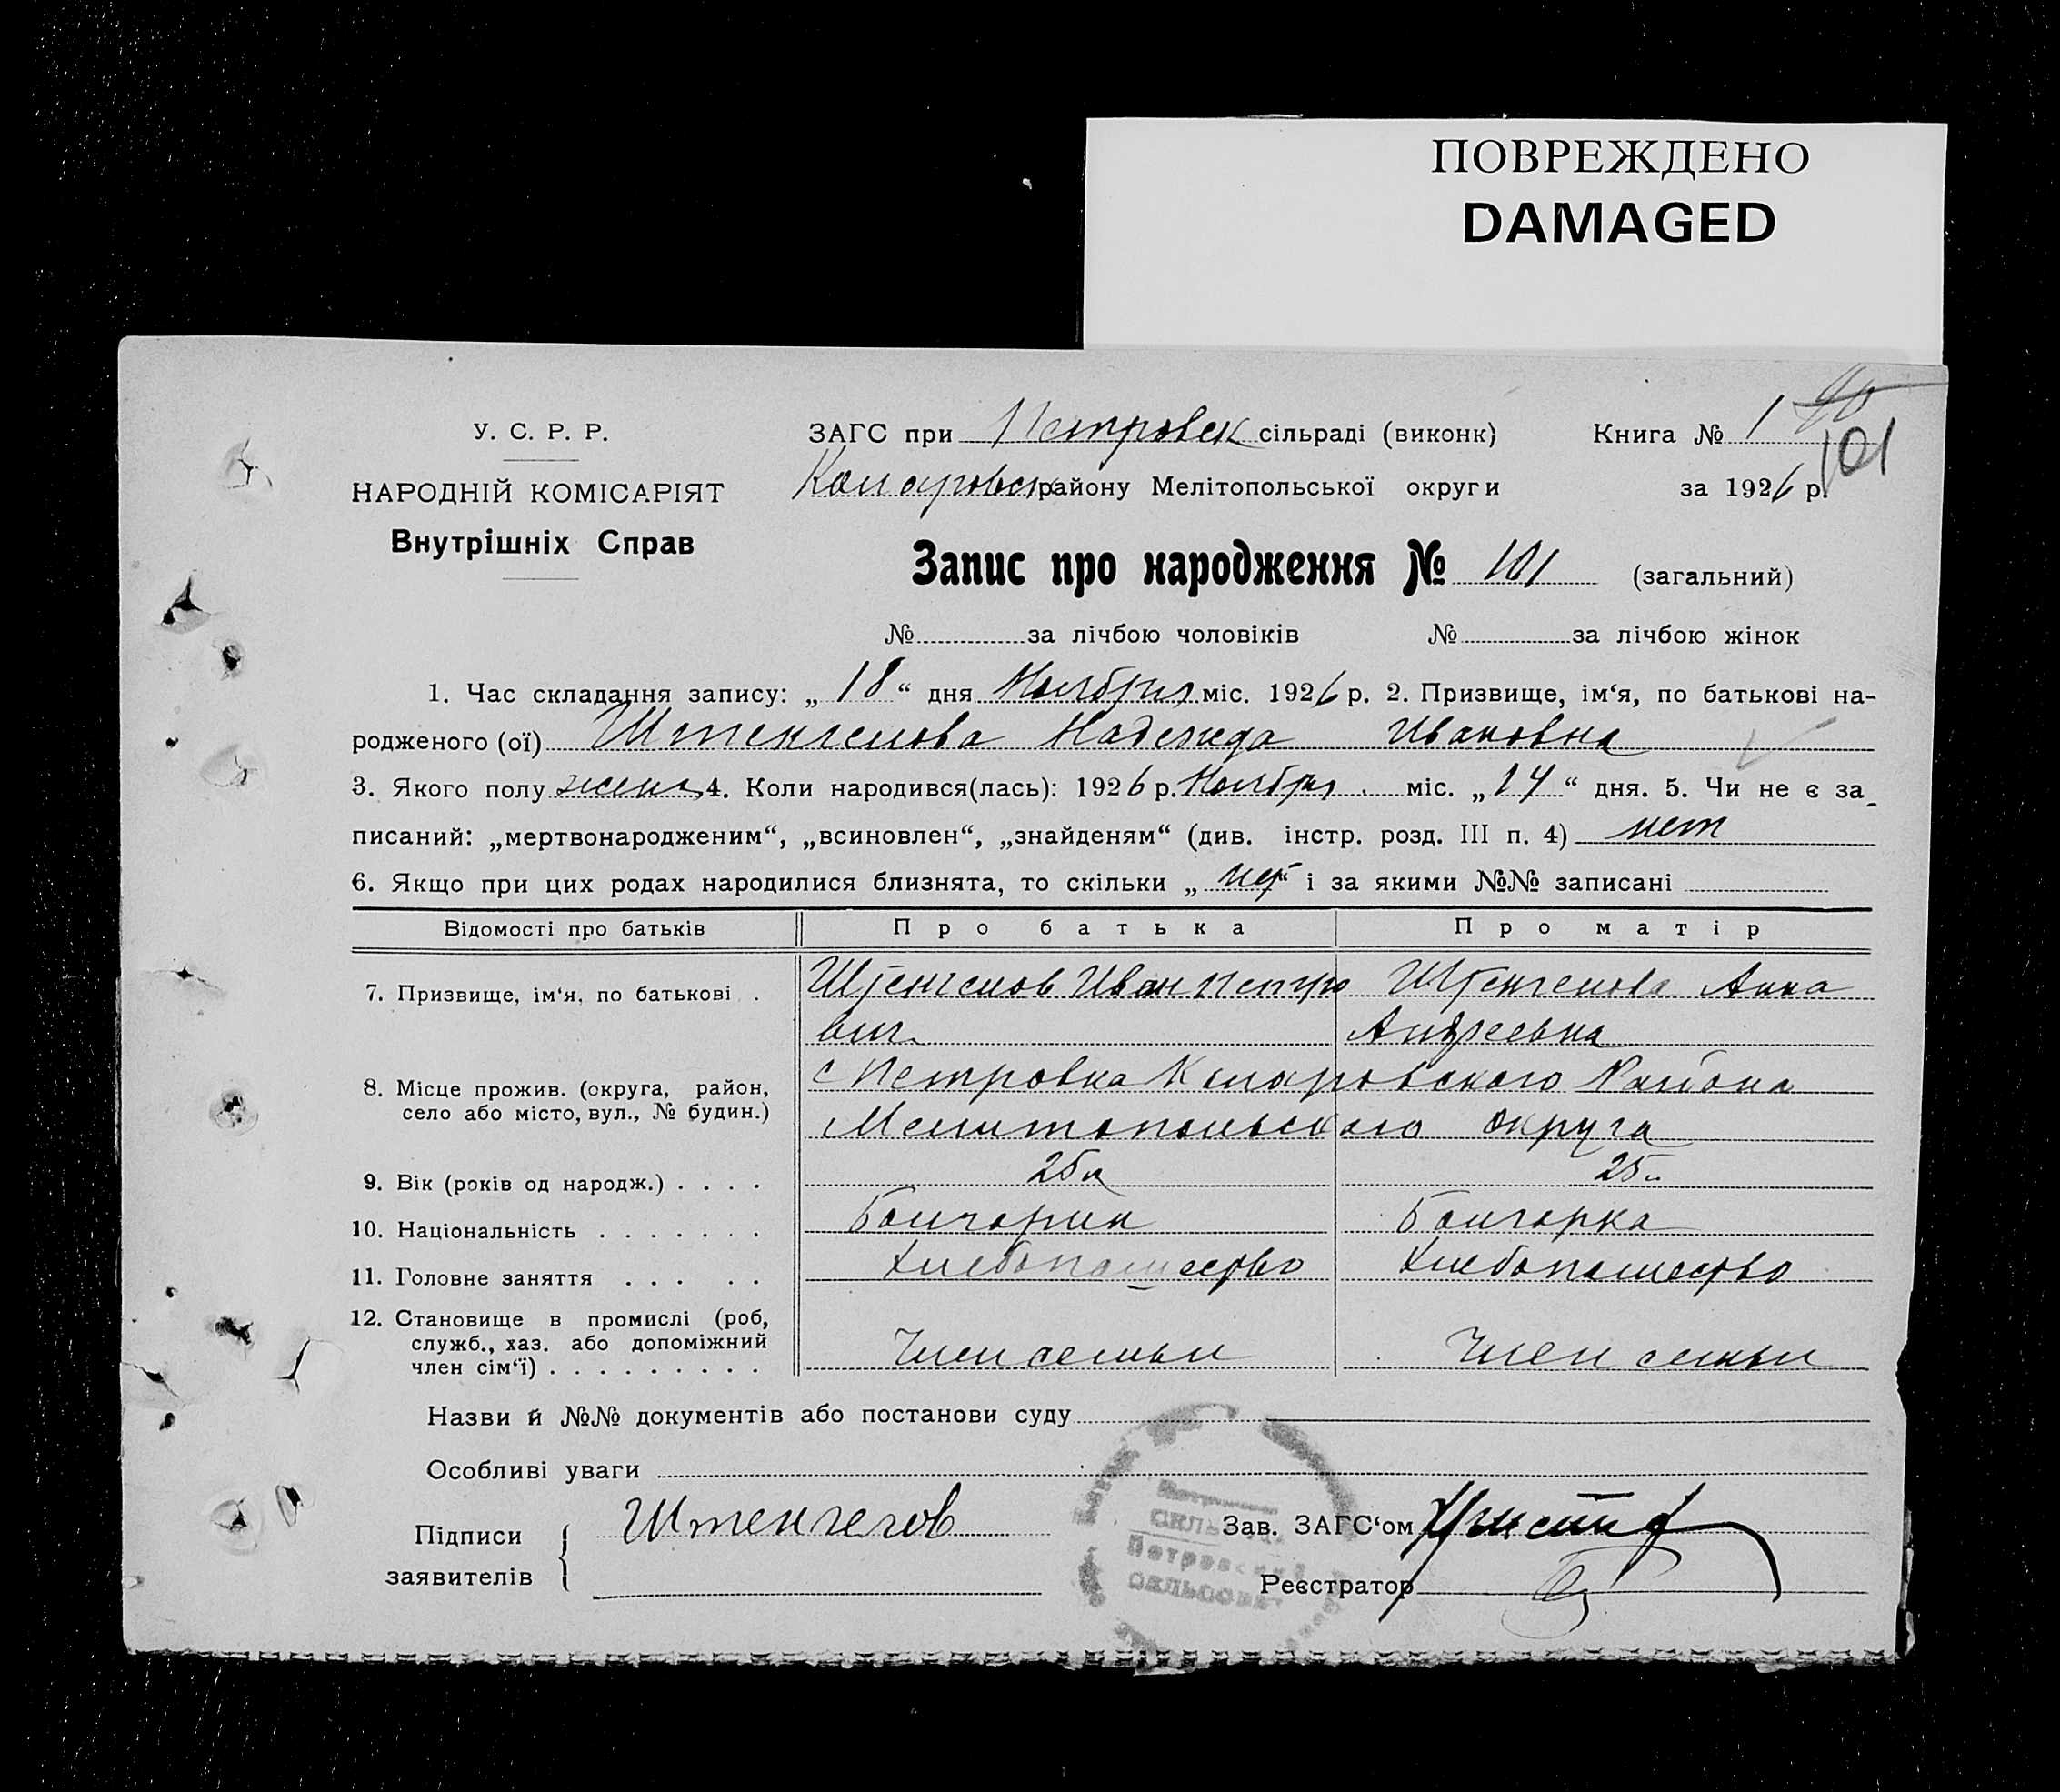 ПОВРЕЖДЕНО
DAMAGED
У. С. Р. Р.
НАРОДНІЙ КОМІСАРІЯТ
Внутрішніх Справ
ЗАГС при Петровск сільраді (виконк)
Книга № 1
101
району Мелітопольської округи
за 1926 р.
Запис про народження № 101 (загальний)
№ за лічбою чоловіків № за лічбою жінок
1. Час складання запису: „ 18 “ дня Ноября міс. 1926 р. 2. Призвище, ім‘я, по батькові на-
родженого (ої) Штенгелова Надежда Ивановна
3. Якого полу женс 4. Коли народився(лась): 1926 р. Ноября міс. „ 14 “ дня. 5. Чи не є за-
писаний: „мертвонародженим“, „всиновлен“, „знайденям“ (див. інстр. розд. III п. 4) нет
6. Якщо при цих родах народилися близнята, то скільки „ нет “ і за якими №№ записані
Відомості про батьків Про батька Про матір
7. Призвище, ім‘я, по батькові . Штенгелов Иван Петро Штенгелова Анна
вич. Андреевна
8. Місце прожив. (округа, район, с Петровка Коларовского Района
село або місто, вул., № будин.) Мелитопольского округа
9. Вік (років од народж.) . . . . 25 л 25 л
10. Національність . . . . . . . Болгарин Болгарка
11. Головне заняття . . . . . Хлебопашество Хлебопашество
12. Становище в промислі (роб,
служб., хаз. або допоміжний Член семьи Член семьи
член сім‘ї) . . . . . . . . .
Назви й №№ документів або постанови суду
Особливі уваги
Підписи Штенгелов
заявителів
Зав. ЗАГС‘ом
Реєстратор
Петровский
сельсовет